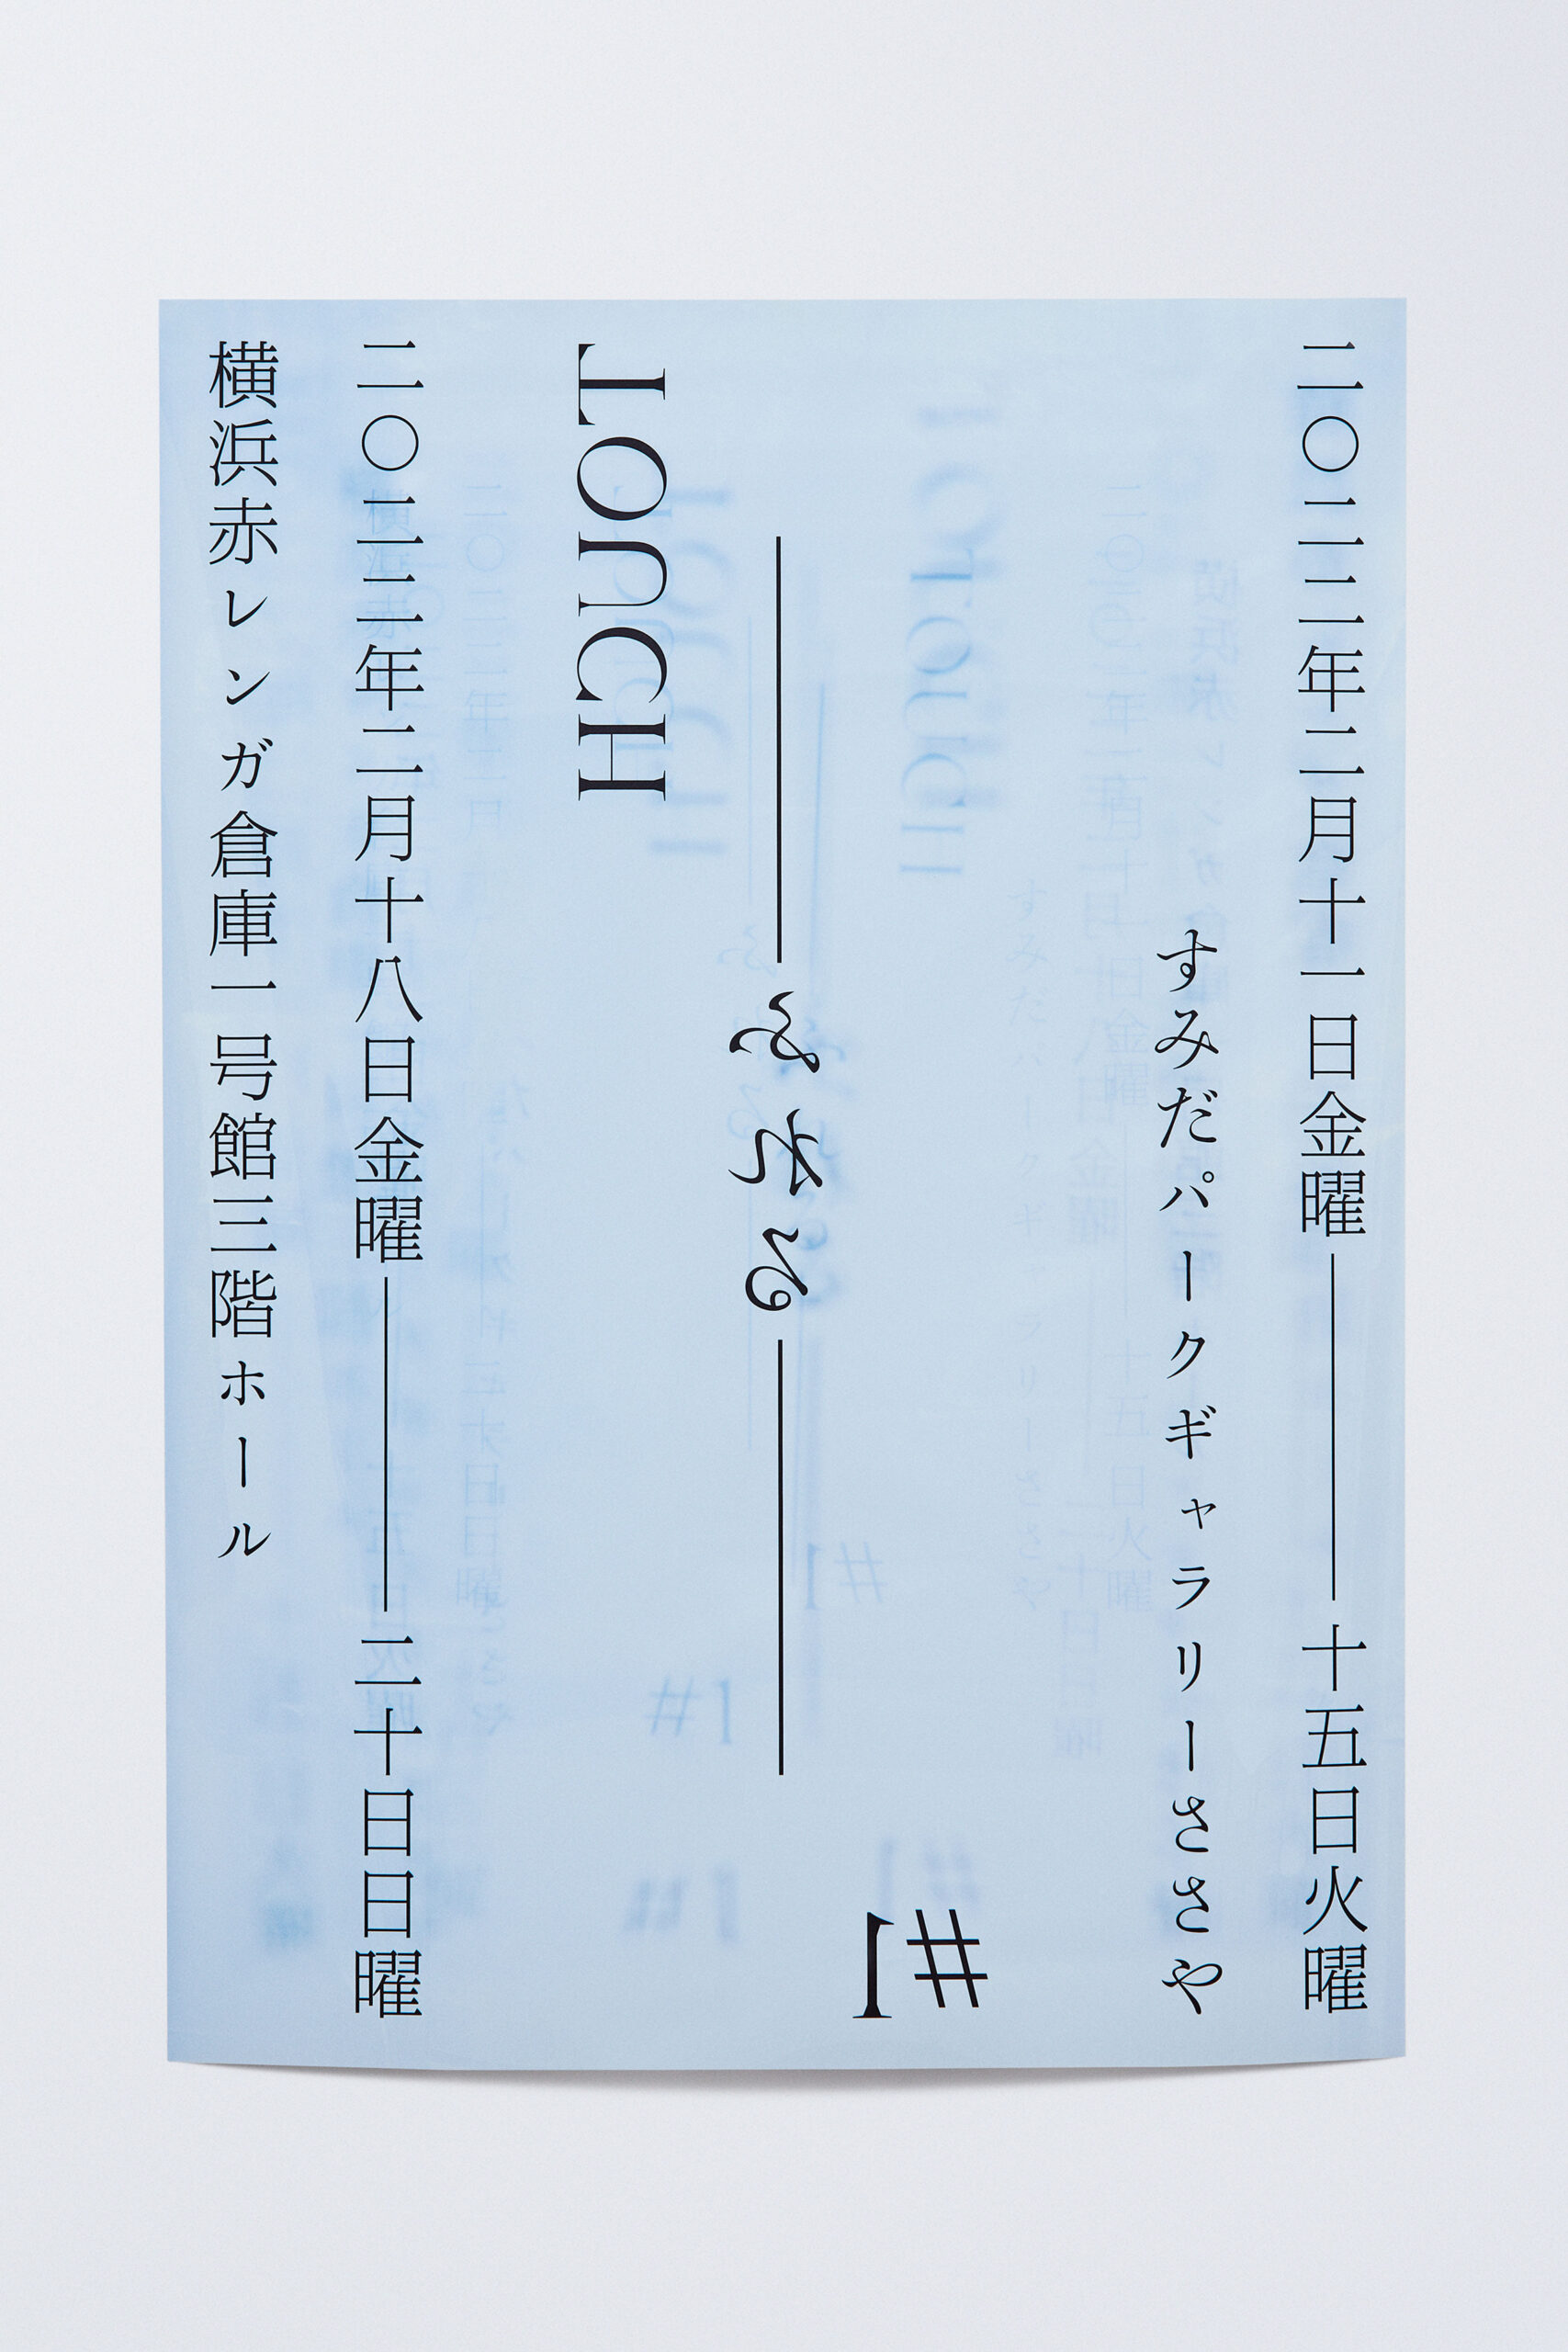 二〇二二年二月十一日金曜——十五日火曜
すみだパークギャラリーささや
#1
——ふれる——
TOUCH
二〇二二年二月十八日金曜——二十日日曜
横浜赤レンガ倉庫一号館三階ホール